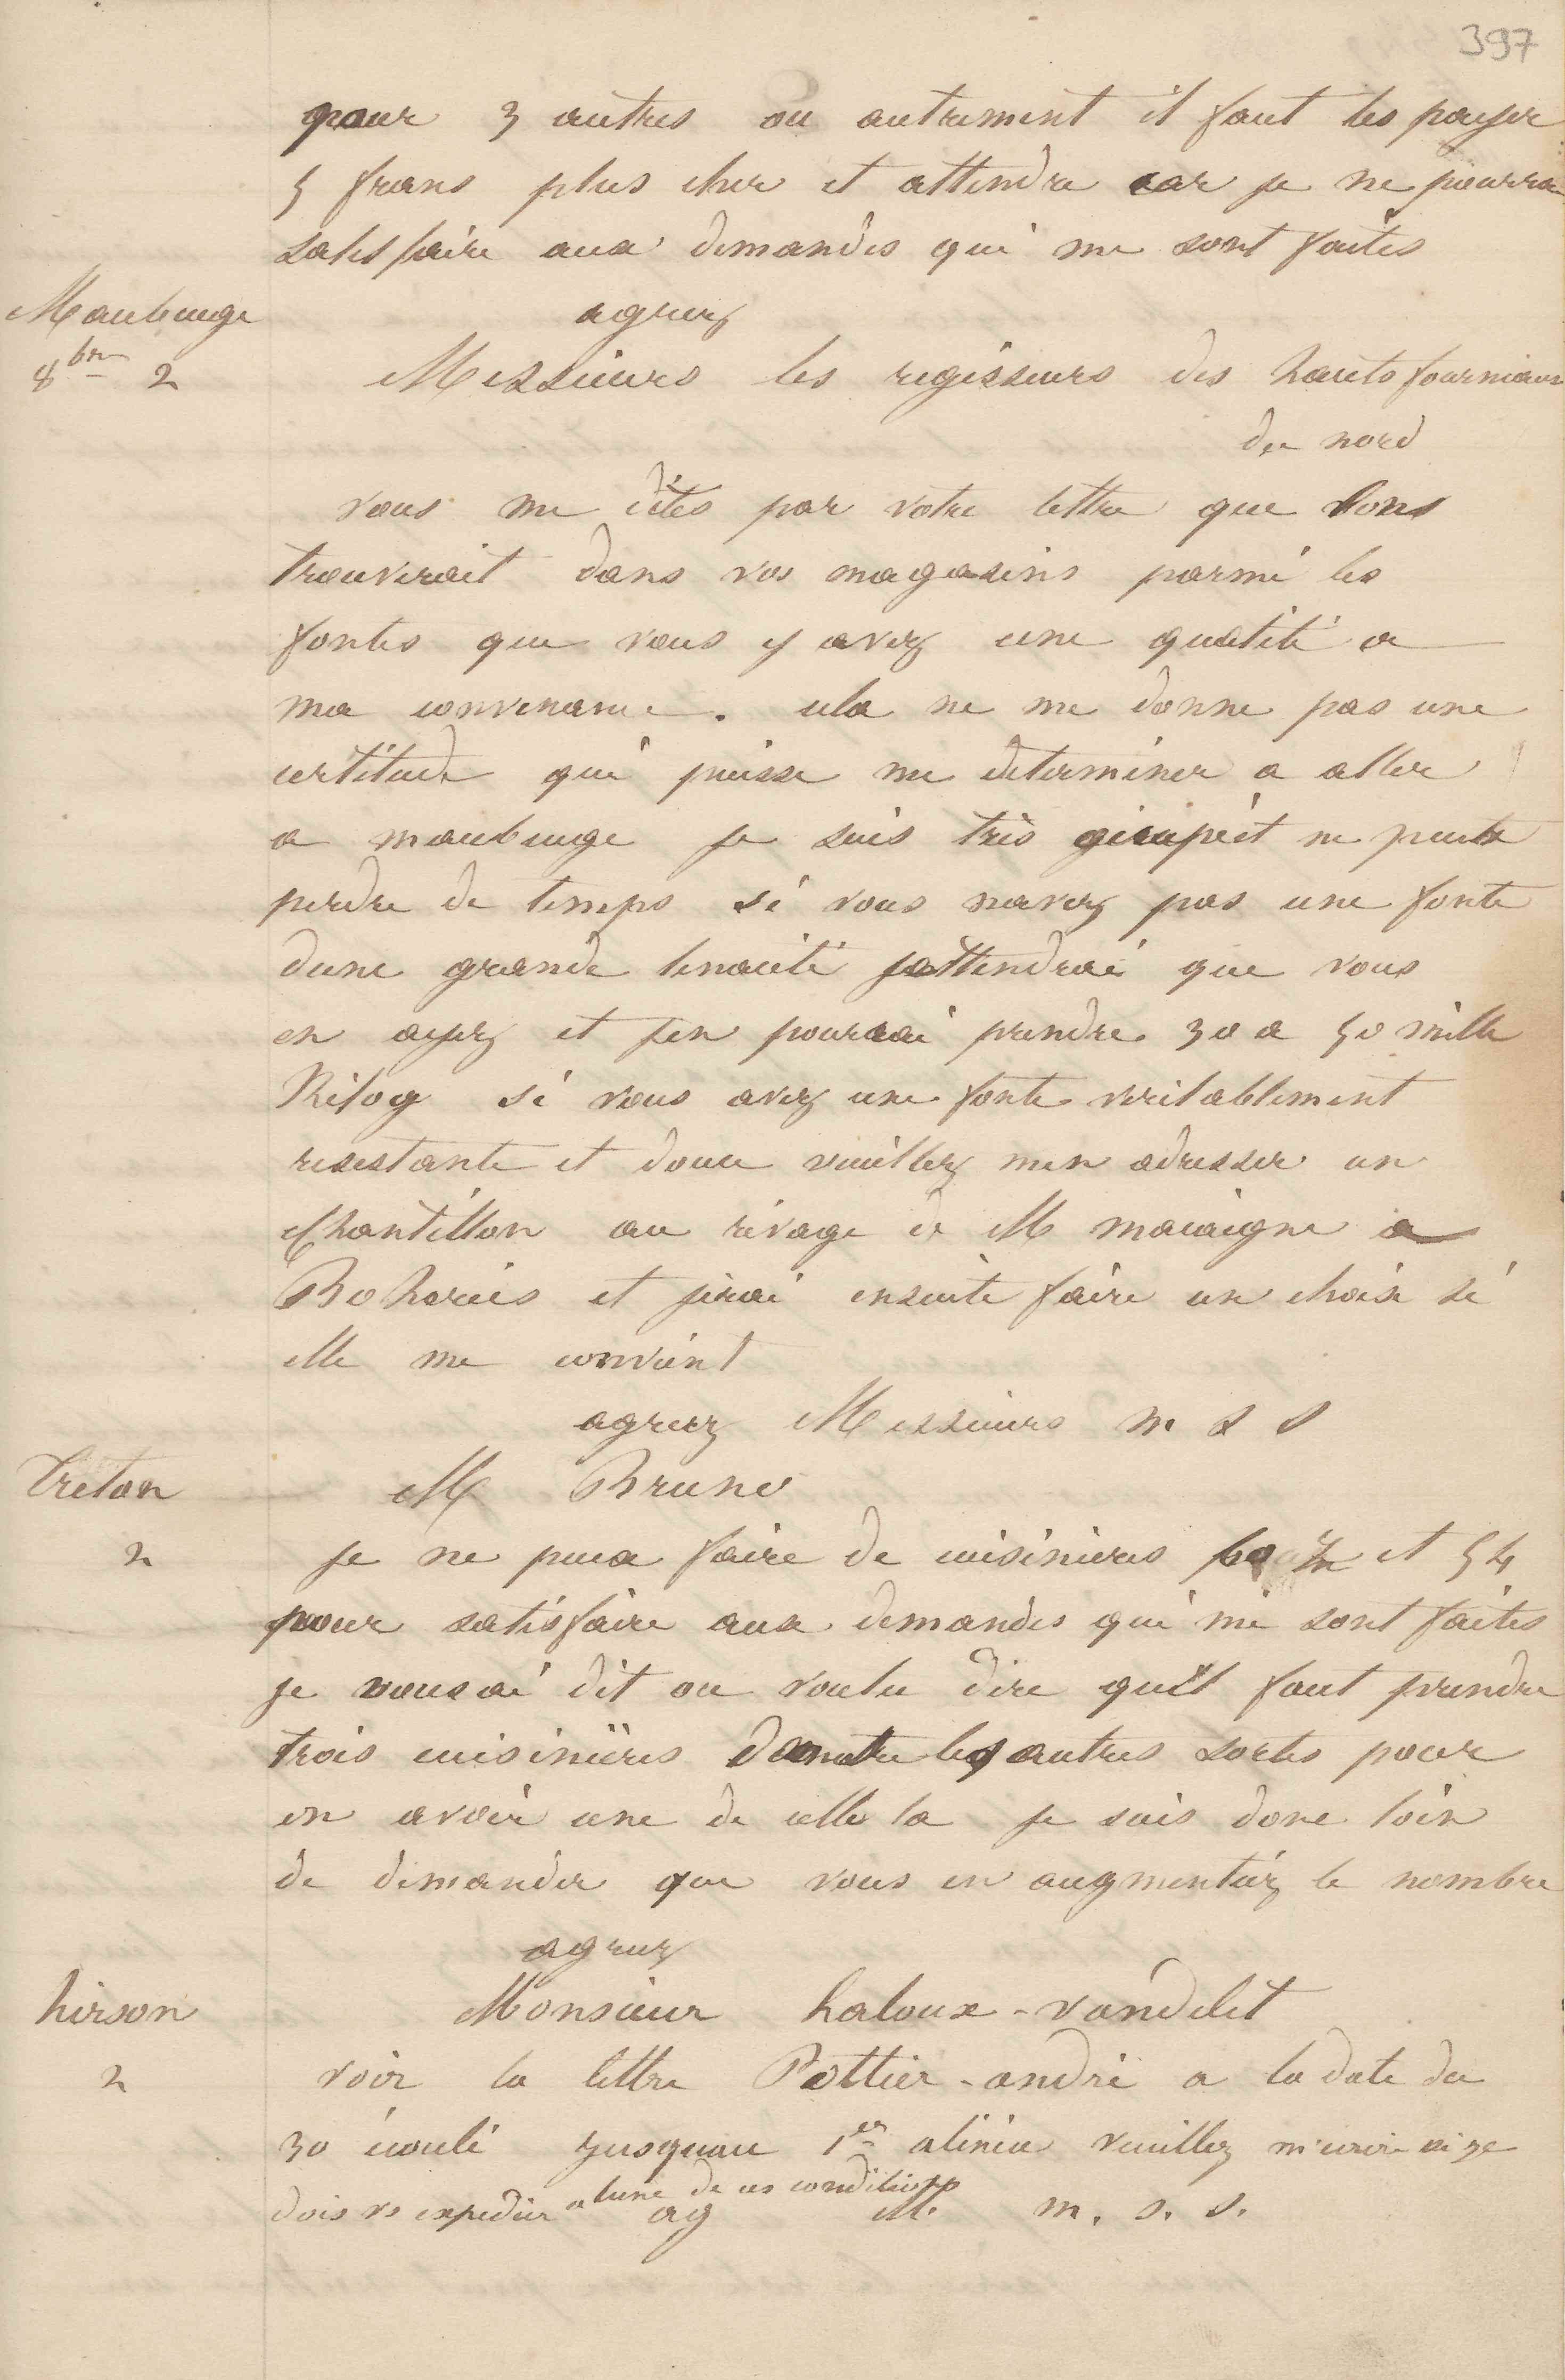 397
pour 3 autres ou autrement il faut les payer
5 frans plus cher et attendre car je ne pourrai
satisfaire aux demandes qui me sont faites
agreez
Maubeuge
8bre 2
Messieurs les regisseurs des hauts fourneaux
du nord
vous me dites par votre lettre que lons
trouverait dans vos magasins parmi les
fontes que vous y avez une quatité a
ma convenance. cela ne me donne pas une
certitude qui puisse me determiner a aller
a maubeuge je suis très et ne peut
perdre de temps si vous navez pas une fonte
dune grande tenacité jattendrai que vous
en ayez et jen pourrai prendre 30 a 50 mille
Kilog si vous avez une fonte veritablement
resestante et douce veuillez men adresser un
echantillon au rivage de M macaigne a
Boheries et jirai ensuite faire un choix si
elle me convient
agreez Messieurs m s s
Treton
2
M Bruno
je ne peux faire de cuisinieres et 54
pour satisfaire aux demandes qui me sont faites
je vous ai dit ou voulu dire qu'il faut prendre
trois cuisinières les autres sortes pour
en avoir une de celle la je suis donc loin
de demander que vous en augmentiez le nombre
agreez
hirson
2
Monsieur haloux-vandelet
voir la lettre Pottier-andré a la date du
30 écoulé jusquau 1er alinea veuillez m'ecrire si je
dois vs expedier a lune de ces conditions
ag M. m. s. s.